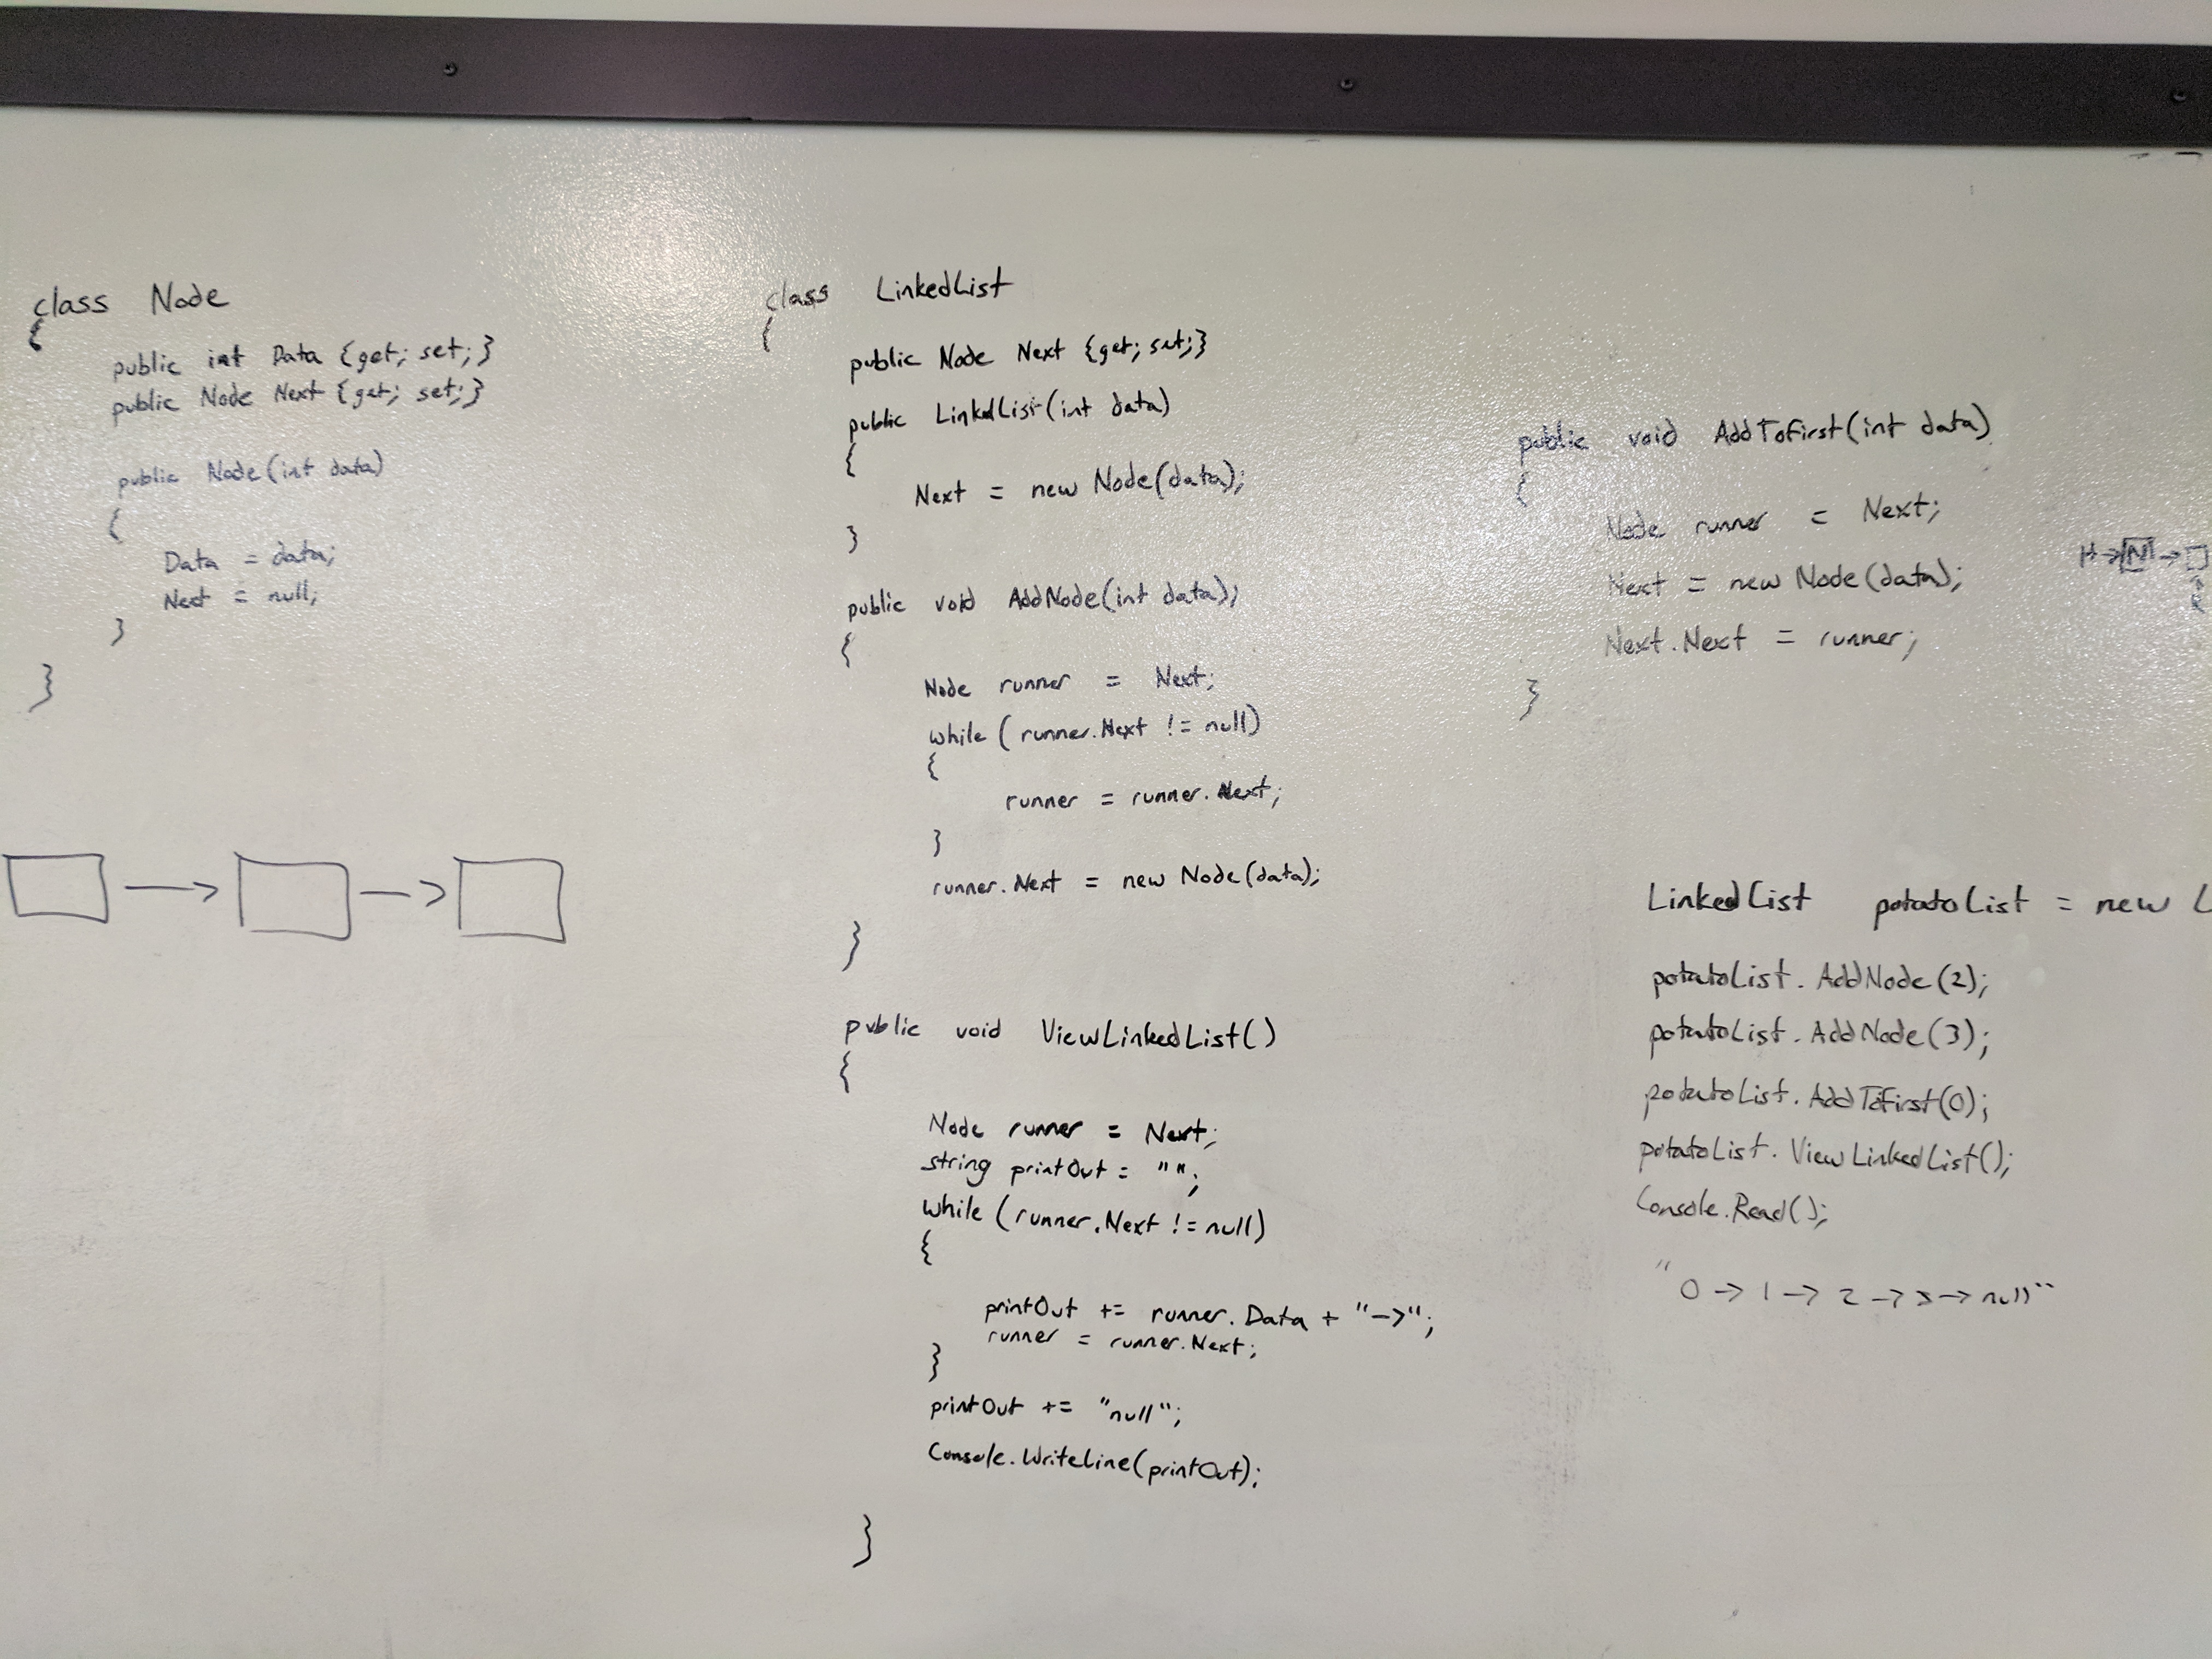 class Node
{
public int Data {get; set;}
public Node Next {get; set;}
public Node(int data)
{
Data = data;
Next = null;
}
}
class LinkedList
{
public Node Next {get; set;}
public LinkedList(int data)
{
Next = new Node(data);
}
public void AddNode(int data);
{
Node runner = Next;
while (runner.Next != null)
{
runner = runner.Next;
}
runner.Next = new Node(data);
}
public void ViewLinkedList()
{
Node runner = Next;
string printOut = "";
while (runner.Next != null)
{
printOut += runner.Data + "->";
runner = runner.Next;
}
printOut += "null";
Console.WriteLine(printOut);
}
public void AddToFirst(int data)
{
Node runner = Next;
Next = new Node(data);
Next.Next = runner;
}
H→N→
LinkedList potatoList = new L
potatoList.AddNode(2);
potatoList.AddNode(3);
potatoList.AddToFirst(0);
potatoList.ViewLinkedList();
Console.Read();
"0→1→2→3→null"